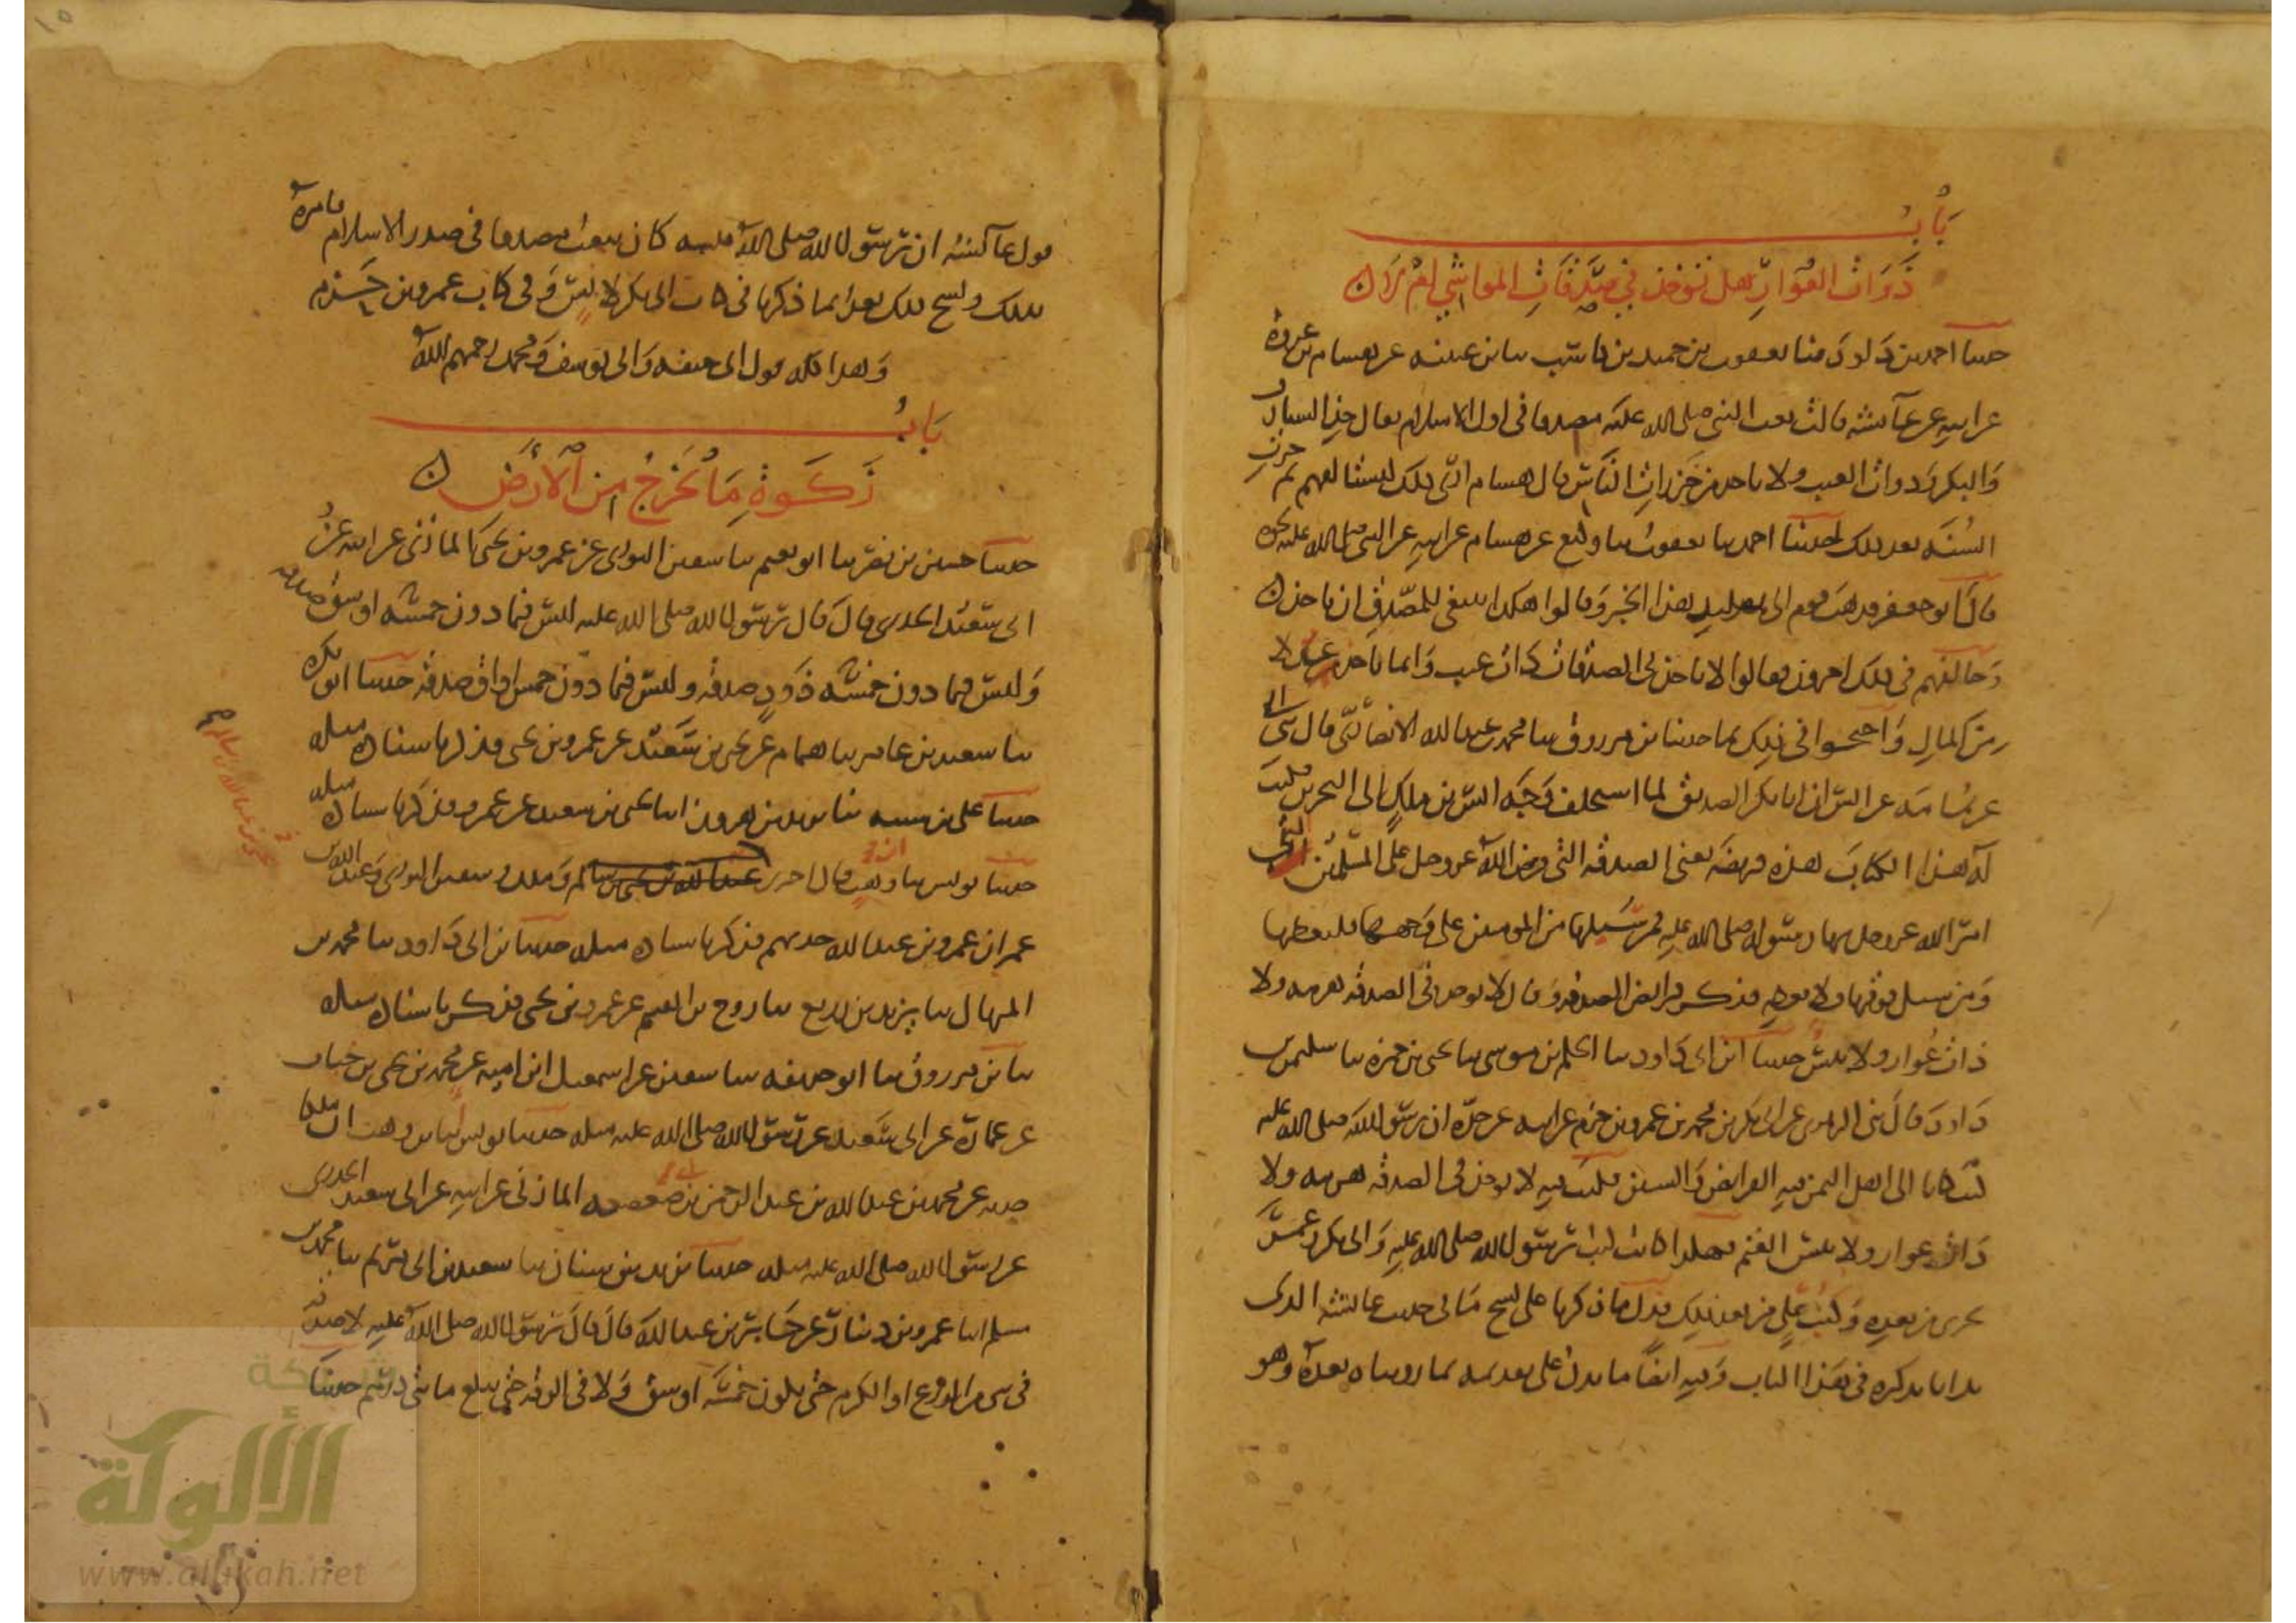 باب
ذوات العوار هل تؤخذ في صدقات المواشي ام لا
حدثنا احمد بن داود قثنا يعقوب بن حميد بن كاسب ثنا ابن عيينه عن هشام بن عروة
عن ابيه عن عآئشه قالت بعث النبي صلى الله عليه مصدقا في اول الاسلام فقال خذ الشارف
والبكر وذوات العيب ولا تاخذ من حزرات الناس قال هشام ارى ذلك ليستالفهم ثم جرت
السنه بعد ذلك حدثنا احمد ثنا يعقوب ثنا وكيع عن هشام عن ابيه عن النبي صلى الله عليه نحوه
قال ابو جعفر فذهب قوم الى تقليد هذا الخبر وقالوا هكذا ينبغي للمصدق ان ياخذ
وخالفهم في ذلك اخرون فقالوا لا ياخذ في الصدقات ذات عيب وانما ياخذ عدلا
من المال واحتجوا في ذلك بما حدثنا ابن مرزوق ثنا محمد بن عبد الله الانصاري قال ثني ابي
عن ثمامه عن انس ان ابا بكر الصديق لما استخلف وجه انس بن ملك الى البحرين فكتب
له هذا الكتاب هذه فريضه يعني الصدقه التي فرض الله عز وجل على المسلمين التي
امر الله عز وجل بها رسوله صلى الله عليه فمن سيلها من المومنين على وجهها فليعطها
ومن سيل فوقها ولا يعطه فذكر فرايض الصدقه وقال لا يوخذ في الصدقه هرمه ولا
ذات عوار ولا تيس حدثنا ابن ابي داود ثنا الحكم بن موسى ثنا يحيى بن حمزه ثنا سليمن بن
داود قال ثني الزهري عن ابي بكر بن محمد بن عمرو بن حزم عن ابيه عن جده ان رسول الله صلى الله عليه
كتب كتابا الى اهل اليمن فيه الفرايض والسنن فكتب فيه لا يوخذ في الصدقه هرمه ولا
ذات عوار ولا تيس الغنم فهكذا كانت كتب رسول الله صلى الله عليه وابي بكر وعمر
تجري من بعده وكتب علي من بعد ذلك فدل ما ذكرنا على نسخ ما في حديث عائشه الذي
بدانا بذكره في هذا الباب وفيه ايضا ما يدل على تقدمه لما رويناه بعده وهو
قول عآئشه ان رسول الله صلى الله عليه كان يبعث مصدقا في صدر الاسلام فامره
بذلك ونسخ ذلك بعد انما ذكرنا في كتاب ابي بكر لانس وفي كتاب عمرو بن حزم
وهذا كله قول ابي حنيفه وابي يوسف ومحمد رحمهم الله
باب
زكوة ما يخرج من الارض
حدثنا حسين بن نصر ثنا ابو نعيم ثنا سفين الثوري عن عمرو بن يحيى المازني عن ابيه عن
ابي سعيد الخدري قال قال رسول الله صلى الله عليه ليس فيما دون خمسه اوسق صدقه
وليس فيما دون خمسه ذود صدقه وليس فيما دون خمس اواق صدقه حدثنا ابو بكره
ثنا سعيد بن عامر ثنا همام عن يحيى بن سعيد عن عمرو بن يحيى فذكر باسناده مثله
حدثنا علي بن شيبه ثنا يزيد بن هرون انبا يحيى بن سعيد عن عمرو فذكر باسناده مثله
حدثنا يونس ثنا ابن وهب قال اخبرني عبد الله بن يحيى بن سالم وملك وسفين الثوري وعبد الله بن
عمر ان عمرو بن عبد الله حدثهم فذكر باسناده مثله حدثنا ابن ابي داود ثنا محمد بن
المنهال ثنا يزيد بن زريع ثنا روح بن القسم عن عمرو بن يحيى فذكر باسناده مثله
ثنا ابن مرزوق ثنا ابو حذيفه ثنا سفين عن اسمعيل ابن اميه عن محمد بن يحيى بن حبان
عن عمارة عن ابي سعيد عن رسول الله صلى الله عليه مثله حدثنا يونس ثنا ابن وهب ان ملكا
حدثه عن محمد بن عبد الله بن عبد الرحمن بن ابي صعصعه المازني عن ابيه عن ابي سعيد الخدري
عن رسول الله صلى الله عليه مثله حدثنا يزيد بن سنان ثنا سعيد بن ابي مريم ثنا محمد بن
مسلم انبا عمرو بن دينار عن جابر بن عبد الله قال قال رسول الله صلى الله عليه لا صدقه
في شي من الزرع او الكرم حتى يكون خمسه اوسق ولا في الرقه حتى يبلغ مائتي درهم حدثنا
شبكة
الألوكة
www.alukah.net